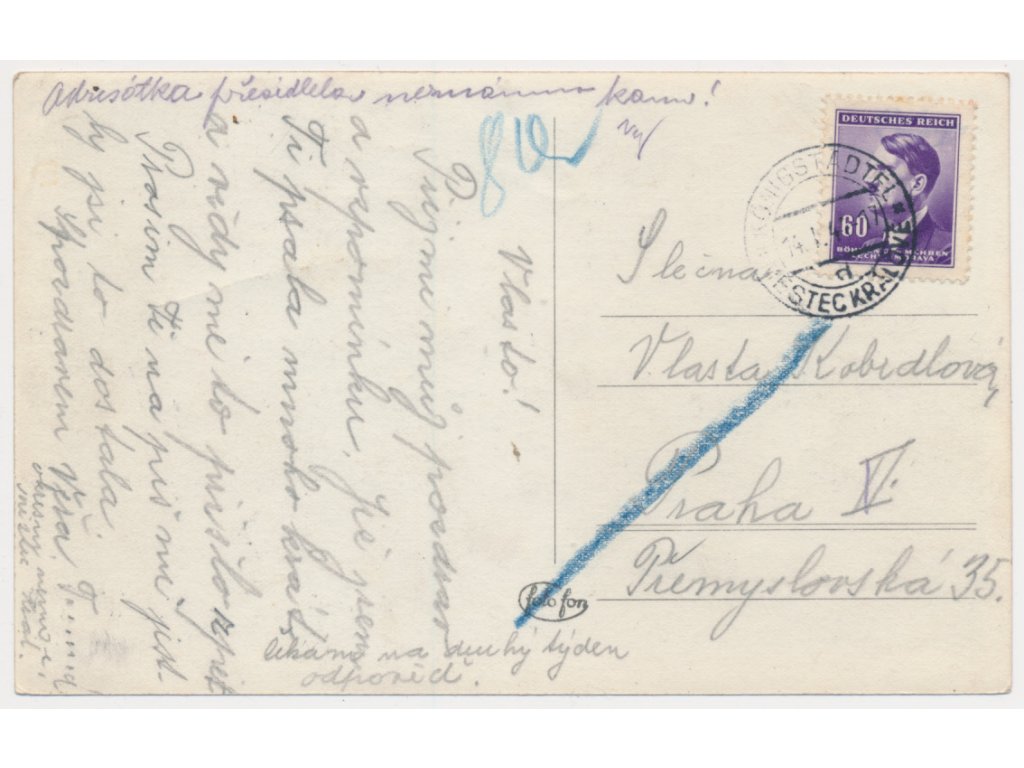 adresátka přesídlela neznámo kam!
Vlasto!
Přijmi můj pozdrav
a vzpomínku. Již jsem
Ti psala mnoho krát
a vždy mě to přišlo zpět
Prosím Ti napiš mě jest-
by jsi to dostala.
S pozdravem Věra
čekám na druhý týden
odpověď.
foto fon
DEUTSCHES REICH
60
BÖHMEN UND MÄHREN
ČECHY A MORAVA
KÖNIGSTADTEL
MĚSTEC KRÁLOVÉ
d
Slečna
Vlasta Kobrdlová
Praha V.
Přemyslovská 35.